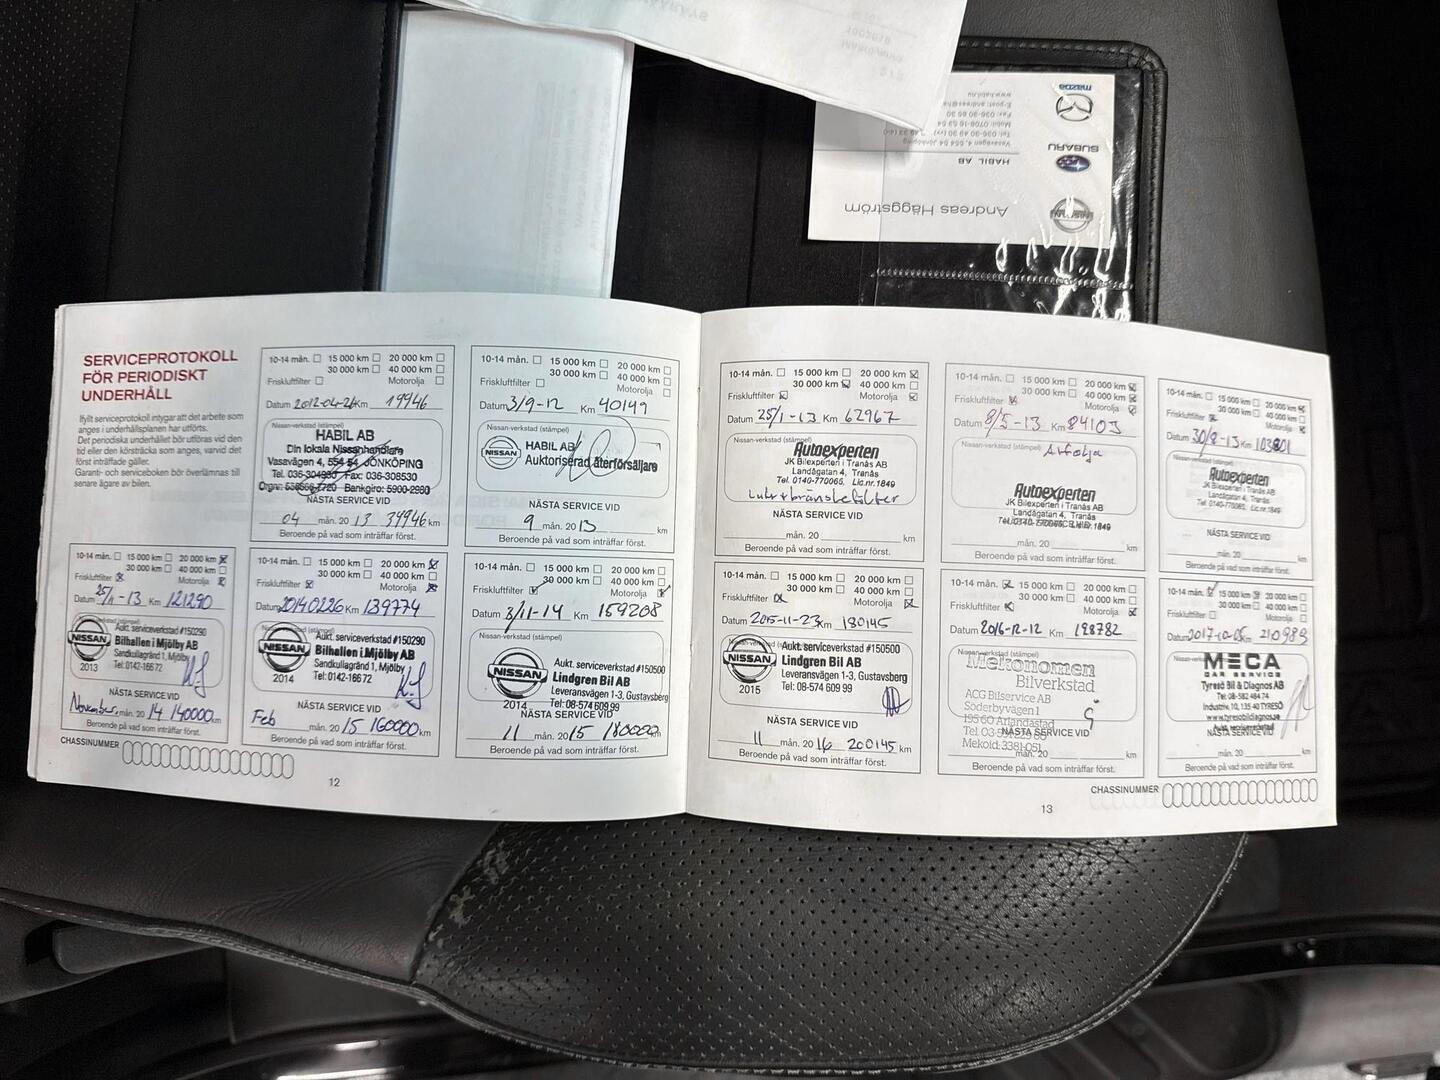 HABIL AB
Andreas Häggström
NISSAN
SUBARU
mazda
SERVICEPROTOKOLL
FÖR PERIODISKT
UNDERHÅLL
Ifyllt serviceprotokoll intygar att det arbete som
anges i underhållsplanen har utförts.
Det periodiska underhållet bör utföras vid den
tid eller den körsträcka som anges, varvid det
först inträffade gäller.
Garanti- och serviceboken bör överlämnas till
senare ägare av bilen.
10-14 mån. 15 000 km 20 000 km
30 000 km 40 000 km
Friskluftfilter Motorolja
Datum 2012-04-26 Km 19946
Nissan-verkstad (stämpel)
HABIL AB
Din lokala Nissanhandlare
Vasavägen 4, 554 54 JÖNKÖPING
Fax: 036-308530
Bankgiro: 5900-2980
NÄSTA SERVICE VID
04 mån. 20 13 39946 km
Beroende på vad som inträffar först.
10-14 mån. 15 000 km 20 000 km
30 000 km 40 000 km
Friskluftfilter Motorolja
Datum 3/9-12 Km 40149
Nissan-verkstad (stämpel)
NISSAN HABIL AB
Auktoriserad återförsäljare
NÄSTA SERVICE VID
9 mån. 20 13 km
Beroende på vad som inträffar först.
10-14 mån. 15 000 km 20 000 km
30 000 km 40 000 km
Friskluftfilter Motorolja
Datum 25/11-13 Km 121290
Nissan-verkstad (stämpel)
NISSAN
2013
Aukt. serviceverkstad #150290
Bilhallen i Mjölby AB
Sandkullagränd 1, Mjölby
Tel: 0142-166 72
NÄSTA SERVICE VID
November. mån. 20 14 140000 km
Beroende på vad som inträffar först.
10-14 mån. 15 000 km 20 000 km
30 000 km 40 000 km
Friskluftfilter Motorolja
Datum 20140226 Km 139774
Nissan-verkstad (stämpel)
NISSAN
2014
Aukt. serviceverkstad #150290
Bilhallen i Mjölby AB
Sandkullagränd 1, Mjölby
Tel: 0142-166 72
NÄSTA SERVICE VID
Feb mån. 20 15 160000 km
Beroende på vad som inträffar först.
10-14 mån. 15 000 km 20 000 km
30 000 km 40 000 km
Friskluftfilter Motorolja
Datum 3/11-14 Km 159208
Nissan-verkstad (stämpel)
NISSAN
2014
Aukt. serviceverkstad #150500
Lindgren Bil AB
Leveransvägen 1-3, Gustavsberg
Tel: 08-574 609 99
NÄSTA SERVICE VID
11 mån. 20 15 180000 km
Beroende på vad som inträffar först.
CHASSINUMMER
12
10-14 mån. 15 000 km 20 000 km
30 000 km 40 000 km
Friskluftfilter Motorolja
Datum 25/1-13 Km 62967
Nissan-verkstad (stämpel)
Autoexperten
JK Bilexperten i Tranås AB
Landågatan 4, Tranås
Tel. 0140-770065. Lic.nr.1849
Luft+bränslefilter
NÄSTA SERVICE VID
mån. 20 km
Beroende på vad som inträffar först.
10-14 mån. 15 000 km 20 000 km
30 000 km 40 000 km
Friskluftfilter Motorolja
Datum 8/5-13 Km 84103
Nissan-verkstad (stämpel)
Autoexperten
JK Bilexperten i Tranås AB
Landågatan 4, Tranås
mån. 20 km
Beroende på vad som inträffar först.
10-14 mån. 15 000 km 20 000 km
30 000 km 40 000 km
Friskluftfilter Motorolja
Datum 30/8-13 Km 103801
Nissan-verkstad (stämpel)
Autoexperten
JK Bilexperten i Tranås AB
Landågatan 4, Tranås
Tel. 0140-770065. Lic.nr.1849
NÄSTA SERVICE VID
mån. 20 km
Beroende på vad som inträffar först.
10-14 mån. 15 000 km 20 000 km
30 000 km 40 000 km
Friskluftfilter Motorolja
Datum 2015-11-23 Km 180145
NISSAN
2015
Aukt. serviceverkstad #150500
Lindgren Bil AB
Leveransvägen 1-3, Gustavsberg
Tel: 08-574 609 99
NÄSTA SERVICE VID
11 mån. 20 16 200145 km
Beroende på vad som inträffar först.
10-14 mån. 15 000 km 20 000 km
30 000 km 40 000 km
Friskluftfilter Motorolja
Datum 2016-12-12 Km 198782
Nissan-verkstad (stämpel)
Mekonomen
Bilverkstad
ACG Bilservice AB
Söderbyvägen 1
195 60 Arlandastad
NÄSTA SERVICE VID
Mekoid: 3381-051
mån. 20 km
Beroende på vad som inträffar först.
10-14 mån. 15 000 km 20 000 km
30 000 km 40 000 km
Friskluftfilter Motorolja
Datum 2017-10-05 Km 210983
MECA
CAR SERVICE
Tyresö Bil & Diagnos AB
Tel: 08-582 484 74
Industriv. 10, 135 40 TYRESÖ
www.tyresobildiagnos.se
NÄSTA SERVICE VID
mån. 20 km
Beroende på vad som inträffar först.
CHASSINUMMER
13